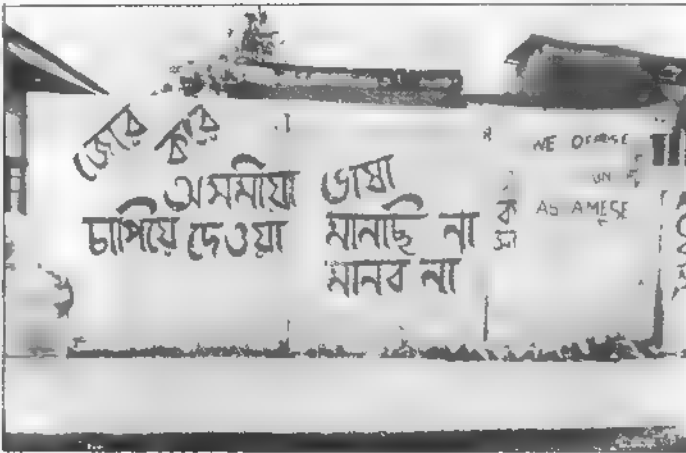 জোর করে
অসমীয়া ভাষা
চাপিয়ে দেওয়া মানছি না
মানব না
WE OPPOSE
UN
ASSAMESE